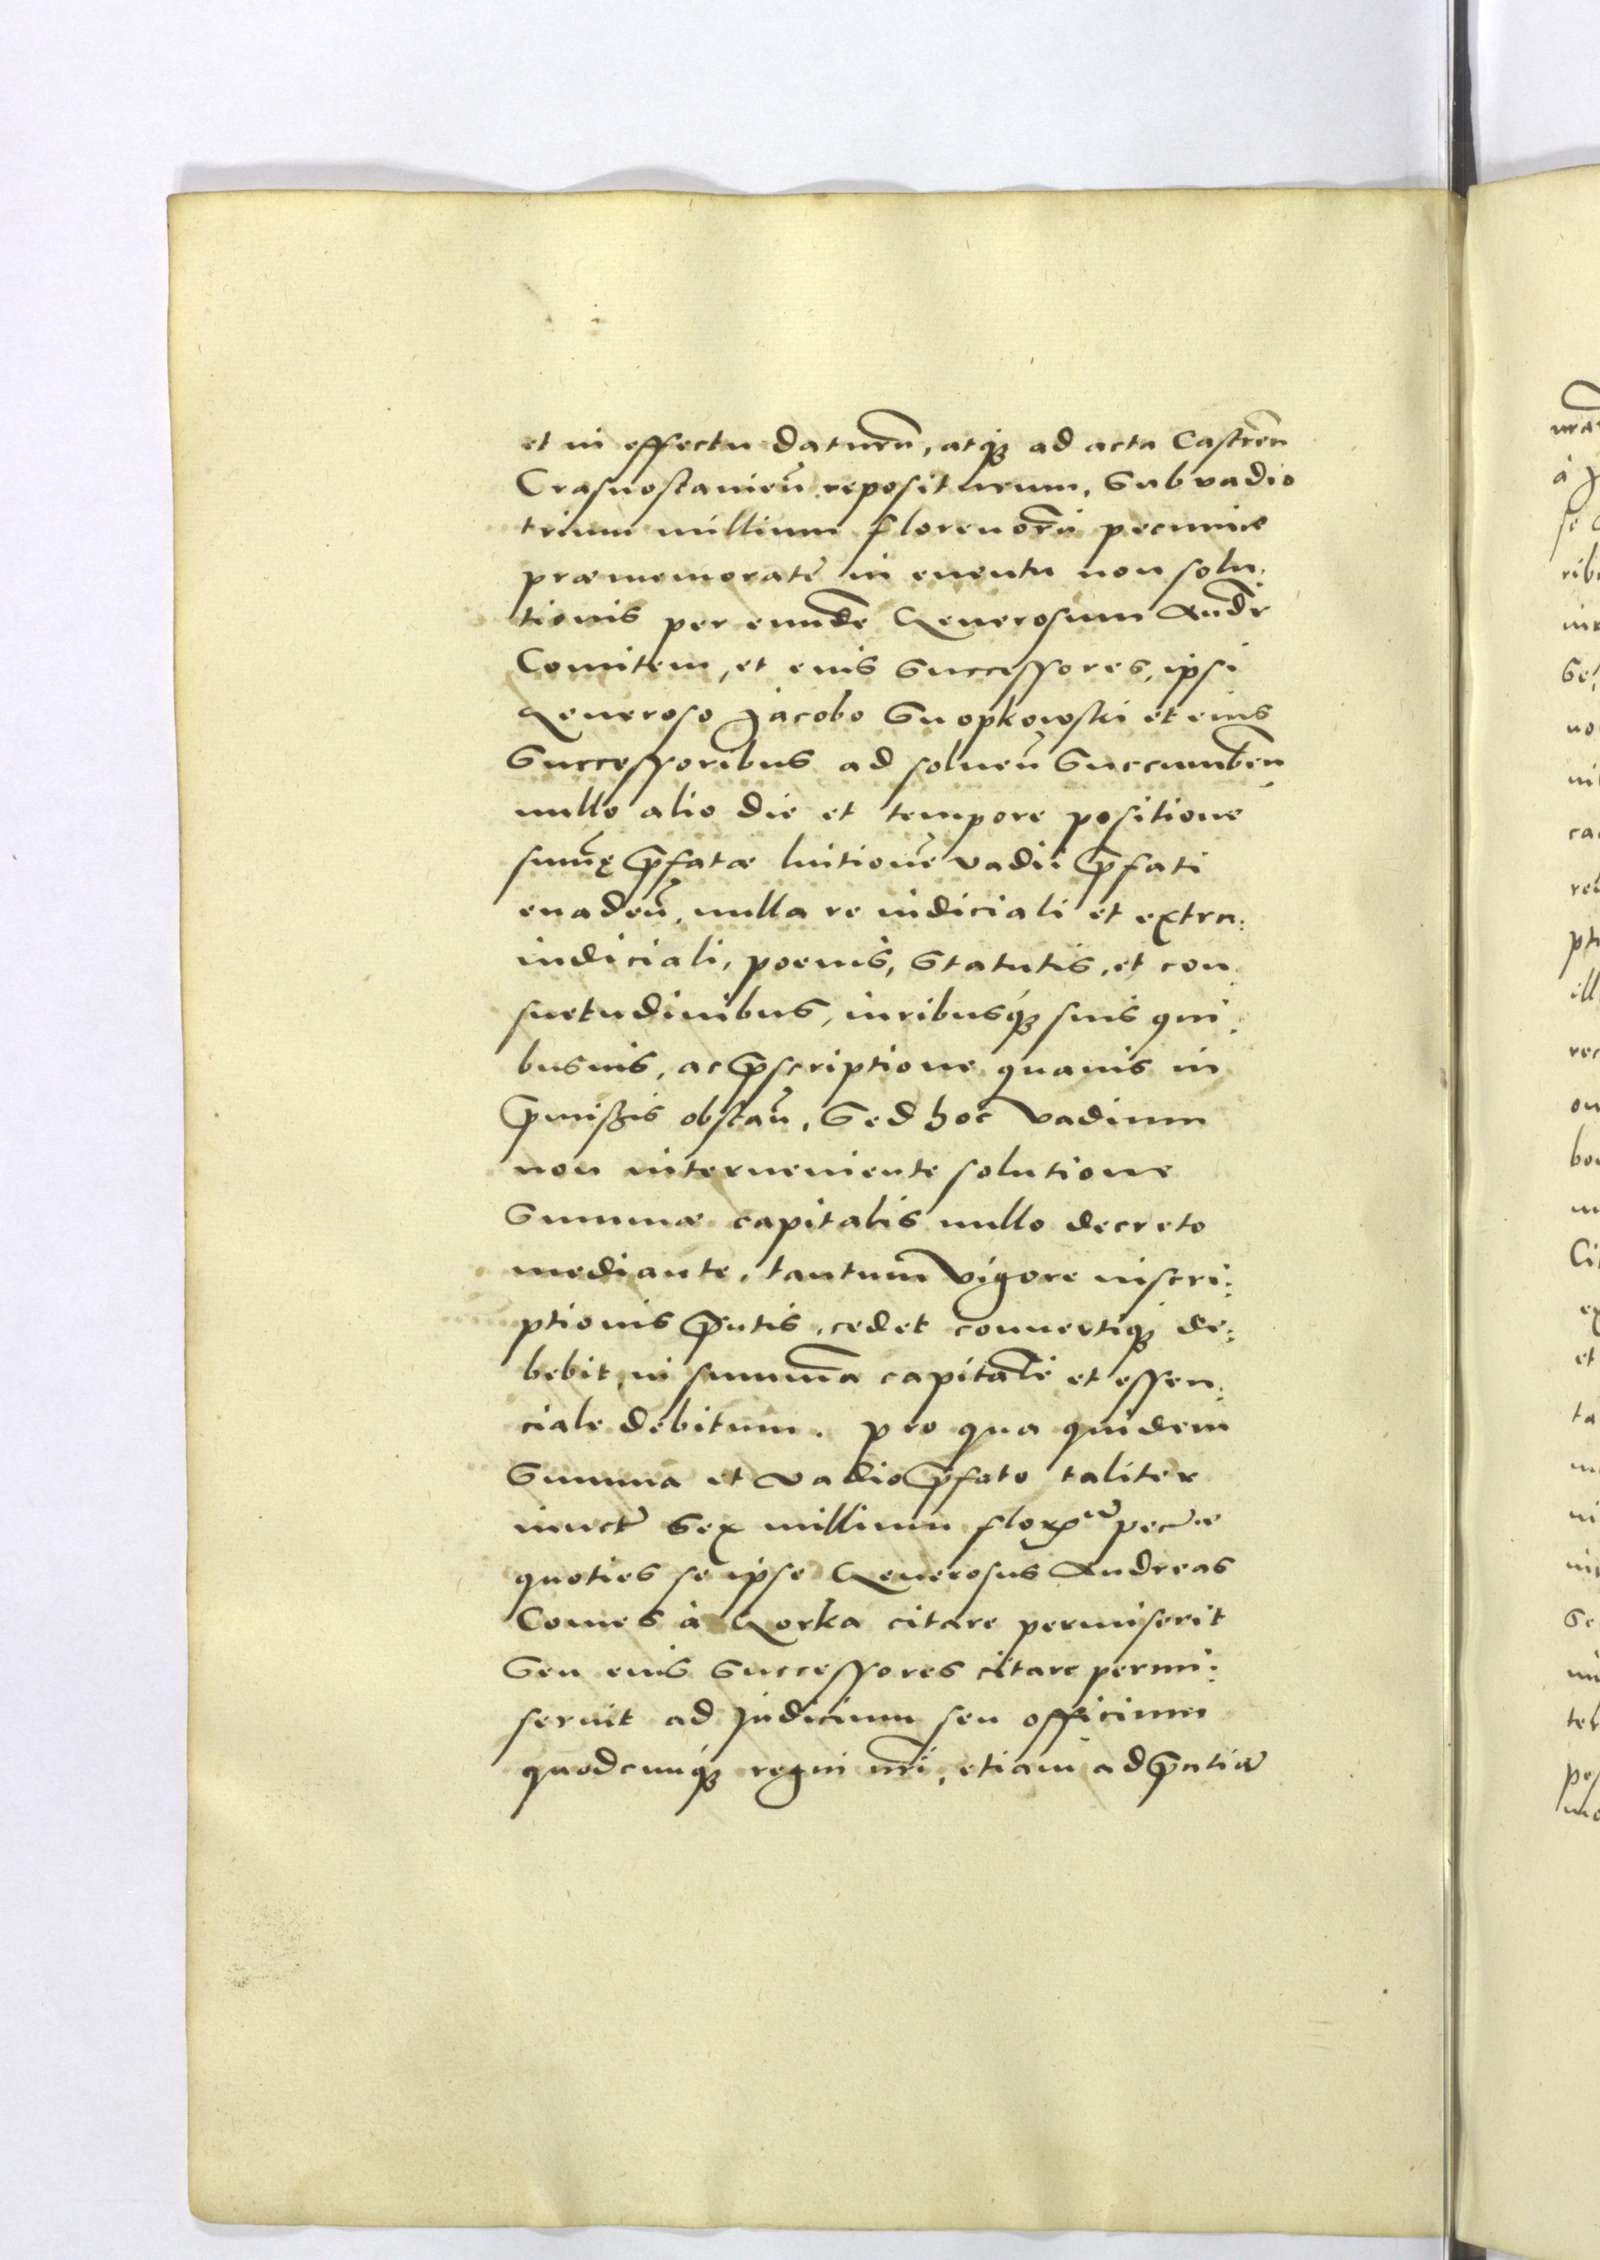 et in effectu daturū, atq̨ ad acta Castreñ
Crasnostavieñ repositurum, Sub vadio
trium millium florenorū pecuniæ
præmemoratę in euentu non solu:
tionis per eundē Generosum Andr̄
Comitem, et eius Successores, ipsi
Generoso Jacobo Snopkowski et eius
Successoribus ad soluen̄ Succumben̄
nullo alio die et tempore positione
sum̄ę p̄fatæ luitionē vadii p̄fati
euaden̄, nulla re iudiciali et extra:
iudiciali, poenis, Statutis, et con:
suetudinibus, iuribusq̨ suis qui:
busuis, ac p̄scriptione quauis in
p̄missis obstan̄, Sed hoc vadium
non interueniente solutione
Summæ capitalis nullo decreto
mediante, tantum vigore inscri:
ptionis p̄ntis, cedet conuertiq̨ de:
bebit, in summā capitalē et essen:
ciale debitum. Pro qua quidem
Summa et vadio p̄fato taliter
iunct̄ Sex millium flor̄ pecūæ
quoties se ipse Generosus Andreas
Comes à Gorka citare permiserit
Seu eius Successores citare permi:
serint ad Judicium seu officium
quodcunq̨ regni nr̄i, etiam ad p̄ntiā